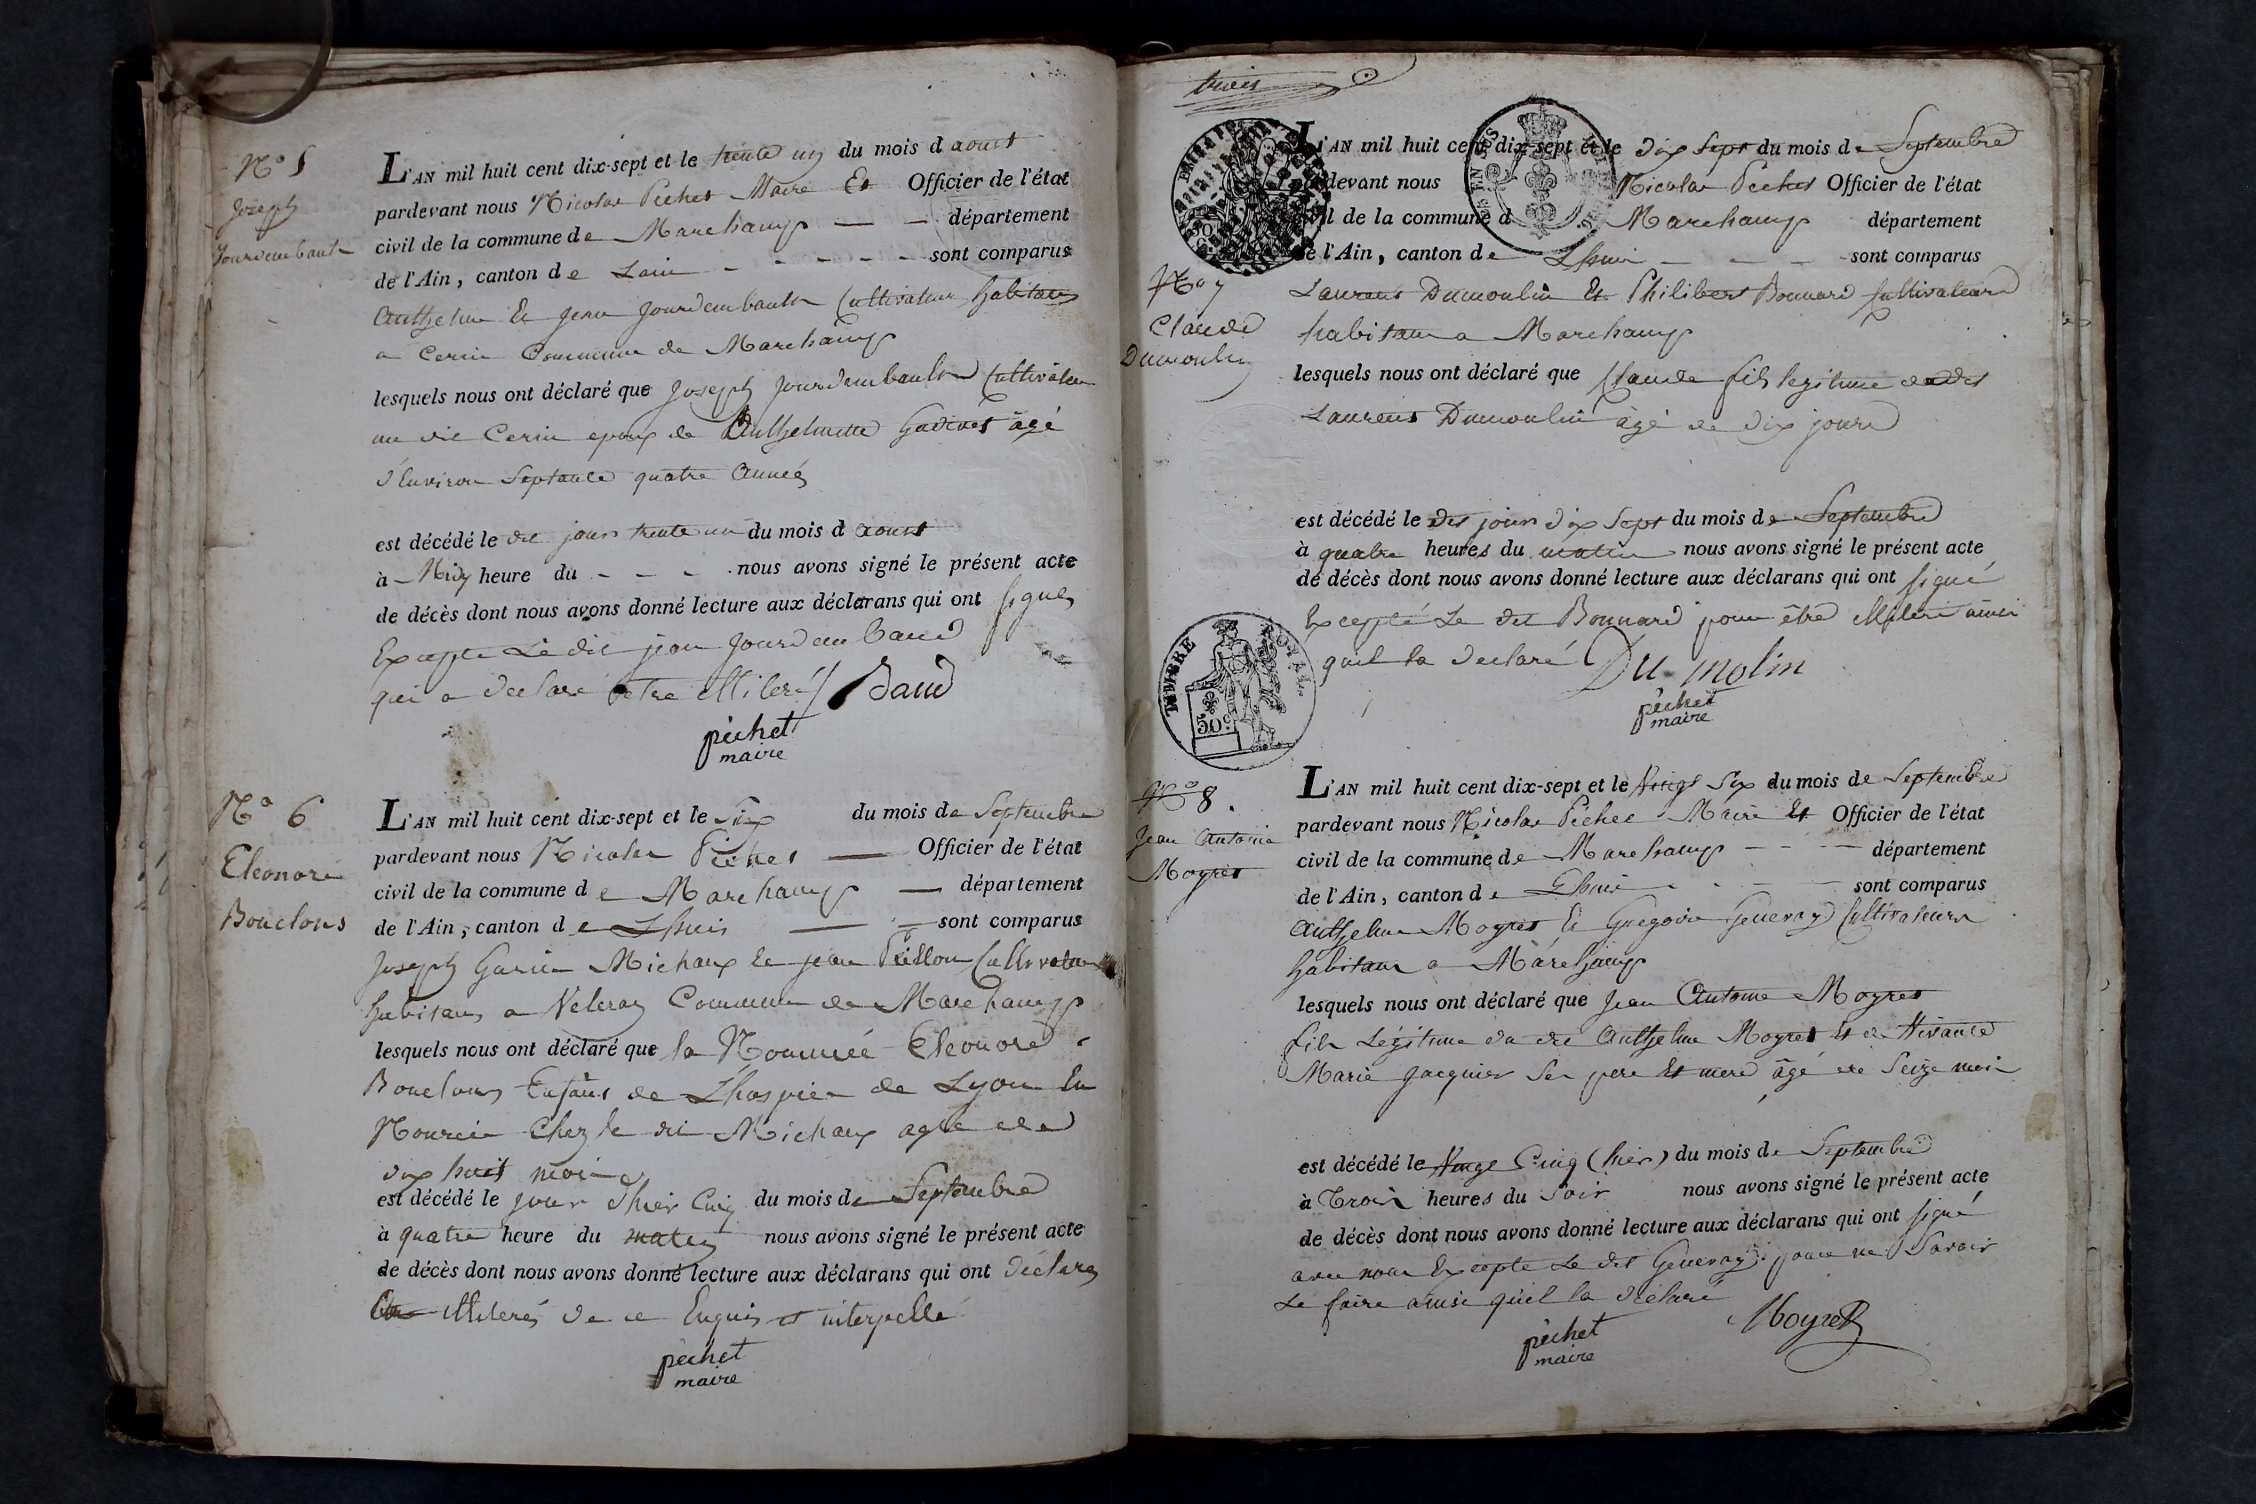 N° 5
Joseph
Jourdembault
L'AN mil huit cent dix-sept et le trente un du mois d aoust
pardevant nous Nicolas Pichet Maire Et Officier de l'état
civil de la commune de Marchamp département
de l'Ain, canton de sont comparus
Anthelme Et Jean Jourdembault Cultivateur habitans
a Cerin Commune de Marchamp
lesquels nous ont déclaré que Joseph Jourdembault Cultivateur
au dit Cerin epoux de Anthelmette âgé
d'Environ Septante quatre Années
est décédé le dit jour trente un du mois d aoust
à Midy heure du - - - nous avons signé le présent acte
de décès dont nous avons donné lecture aux déclarans qui ont signés
Excepte Le dit jean Jourdem Baud
qui a declaré etre illiteré / Baud
pichet
maire
N° 6
Eleonore
Bouclons
L'AN mil huit cent dix-sept et le Six du mois de Septembre
pardevant nous Nicolas Pichet Officier de l'état
civil de la commune de Marchamp département
de l'Ain, canton de Lhuis sont comparus
Joseph Michaux Et jean Cultivateurs
habitans a Commune de Marchamp
lesquels nous ont déclaré que la Nommée Eleonore
Bouclons Enfant de L'hospice de Lyon En
Nourice Chez le dit Michaux agée de
dix huit mois
est décédé le jour d'hier Cinq du mois de Septembre
à quatre heure du matin nous avons signé le présent acte
de décès dont nous avons donné lecture aux déclarans qui ont déclaré
illiterés de ce Enquis et interpellé
pichet
maire
trois
L'AN mil huit cent dix-sept et le dix Sept du mois de Septembre
pardevant nous Nicolas Pichet Officier de l'état
civil de la commune d Marchamp département
de l'Ain, canton de Lhuis sont comparus
N° 7
Claude
Dumoulin
Laurent Dumoulin Et Philibert Bonnard Cultivateurs
habitans a Marchamp
lesquels nous ont déclaré que Claude fils legitime du dit
Laurent Dumoulin âgé de dix jours
est décédé le dit jour dix Sept du mois de Septembre
à quatre heures du matin nous avons signé le présent acte
de décès dont nous avons donné lecture aux déclarans qui ont signé
Excepté Le dit Bonnard pour être illiteré ainsi
quil la declaré Du molin
pichet
maire
TIMBRE ROYAL
50c
N° 8.
Jean Antoine
Moyret
L'AN mil huit cent dix-sept et le Vingt Six du mois de Septembre
pardevant nous Nicolas Pichet Maire Et Officier de l'état
civil de la commune de Marchamp département
de l'Ain, canton de Lhuis sont comparus
Anthelme Moyret Et Gregoire Generay Cultivateurs
habitans a Marchamp
lesquels nous ont déclaré que Jean Antoine Moyret
fils Légitime du dit Anthelme Moyret Et de Vivante
Marie Jacquier Ses pere Et mere âgé de Seize mois
est décédé le Vingt Cinq (hier) du mois de Septembre
à Trois heures du Soir nous avons signé le présent acte
de décès dont nous avons donné lecture aux déclarans qui ont signé
avec nous Excepte Le dit Generay pour ne Savoir
Le faire ainsi quil la declaré
pichet
maire
Moyret